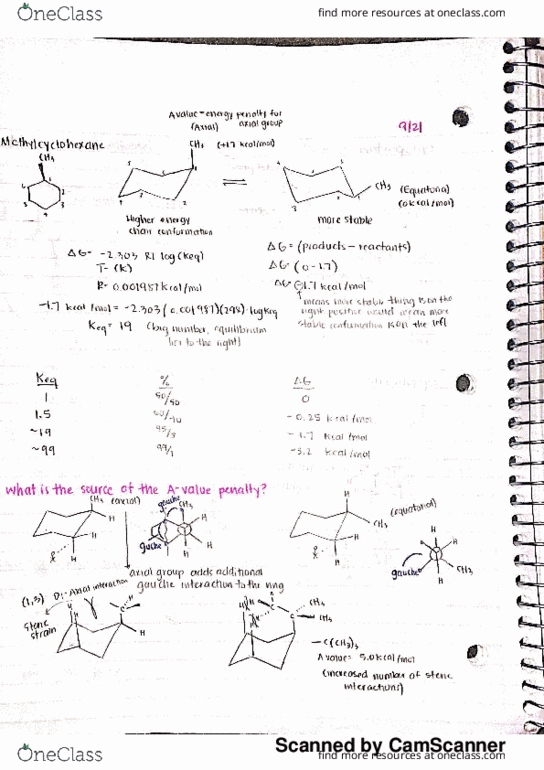 OneClass
find more resources at oneclass.com
A value = energy penalty for
(Axial) axial group
9/21
Methylcyclohexane
CH3
CH3 (+1.7 kcal/mol)
CH3 (Equatorial)
(0 kcal/mol)
Higher energy
chair conformation
more stable
ΔG = -2.303 RT log(Keq)
T- (K)
R= 0.001987 kcal/mol
-1.7 kcal/mol = -2.303 (0.001987)(298) · log Keq
Keq = 19 (big number, equilibrium
lies to the right)
ΔG = (products - reactants)
ΔG = (0 - 1.7)
ΔG = -1.7 kcal/mol
means more stable thing is on the
right positive would mean more
stable conformation is on the left
Keq % ΔG
1 50/50 0
1.5 - 0.25 kcal/mol
~19 95/5 - 1.7 kcal/mol
~99 99/1 -3.2 kcal/mol
what is the source of the A-value penalty?
CH3 (axial)
H
H
R
gauche
CH3
H
H
gauche
H
H
CH3
(equatorial)
H
R
H
H
gauche
CH3
H
axial group adds additional
gauche interaction to the ring
(1,3) Di-Axial interaction
steric
strain
H
H
C
H
H
CH3
CH3
- C(CH3)3
A value = 5.0 kcal/mol
(increased number of steric
interactions)
Scanned by CamScanner
OneClass
find more resources at oneclass.com